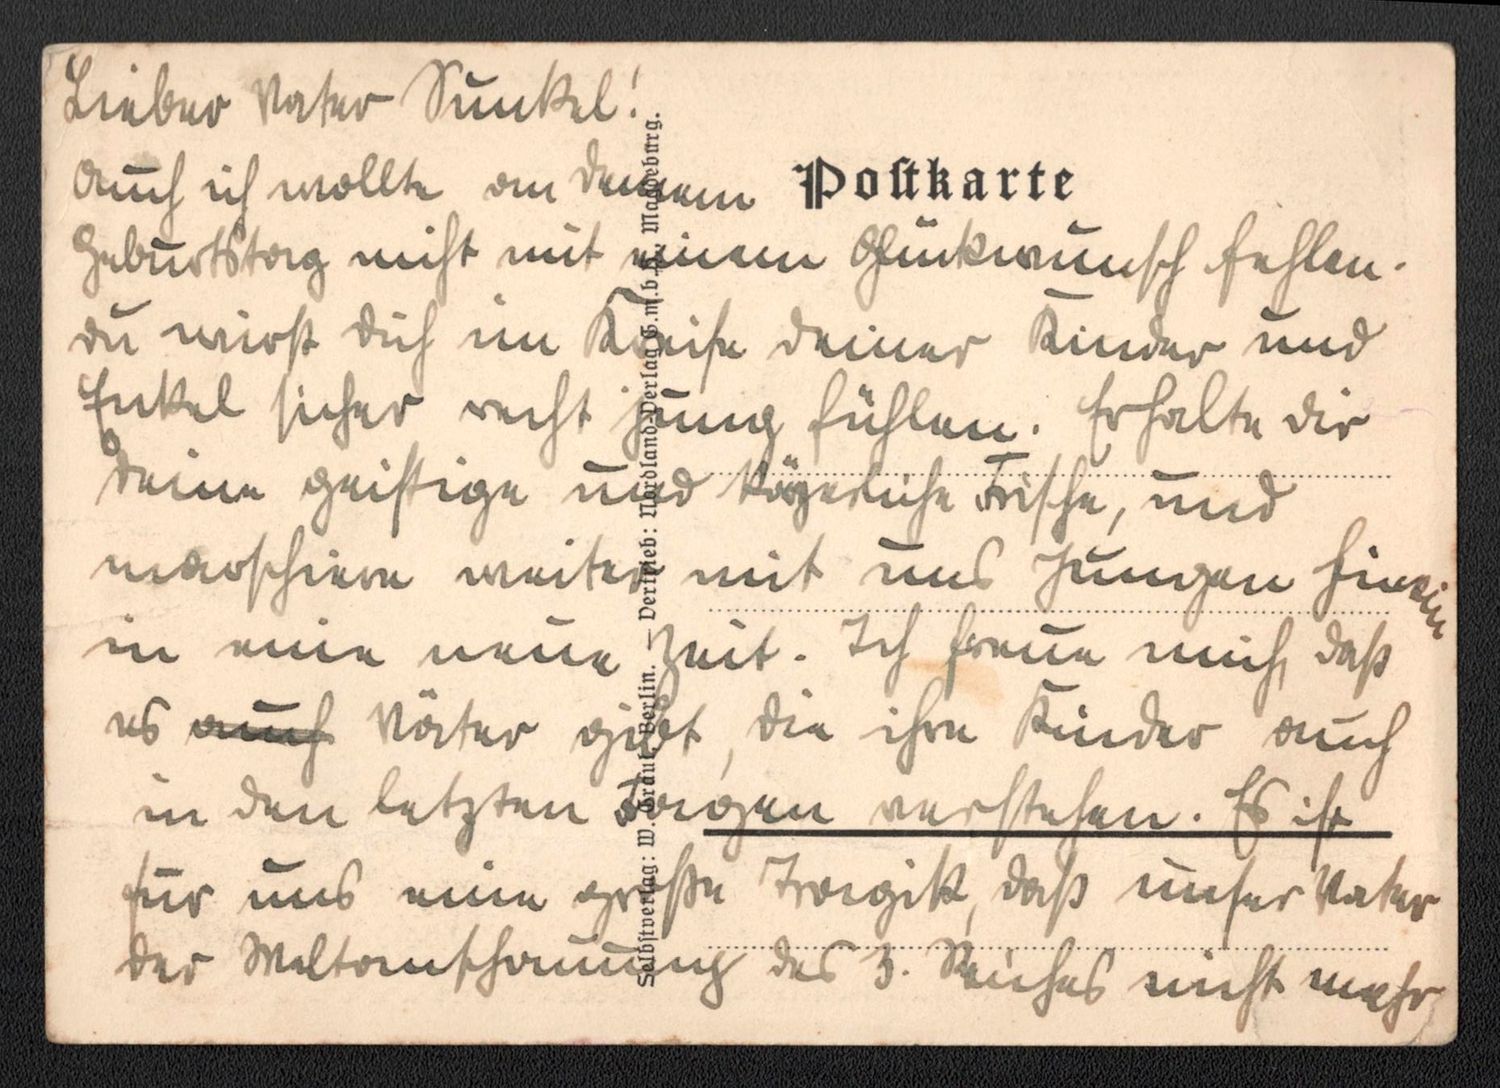 Lieber Vater Sunkel!
Auch ich wollte an Deinem
Postkarte
Geburtstag nicht mit einem Glückwunsch fehlen.
Du wirst Dich im Kreise Deiner Kinder und
Enkel sicher recht jung fühlen. Erhalte Dir
Deine geistige und körperliche Frische, und
marschiere weiter mit uns Jungen hinein
in eine neue Zeit. Ich freue mich, daß
es auch Väter gibt, die ihre Kinder auch
in den letzten Fragen verstehen. Es ist
für uns eine große Tragik, daß unser Vater
der Weltanschauung des 3. Reiches nicht mehr
Selbstverlag: W. Traut, Berlin. — Vertrieb: Nordland-Verlag G.m.b.H., Magdeburg.